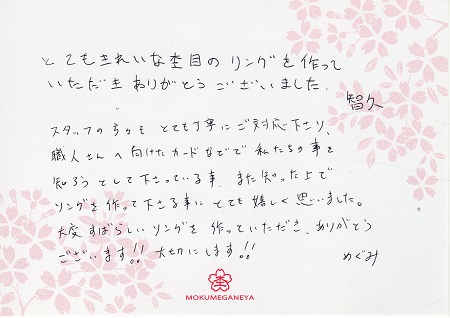 とてもきれいな杢目のリングを作って
いただきありがとうございました.
智久
スタッフの方々も とても丁寧にご対応下さり、
職人さんへ向けたカードなどで私たちの事を
知ろうとして下さっている事、また知った上で
リングを作って下さる事にとても嬉しく思いました。
大変すばらしいリングを作っていただき、ありがとう
ございます!! 大切にします!!
めぐみ
杢
MOKUMEGANEYA